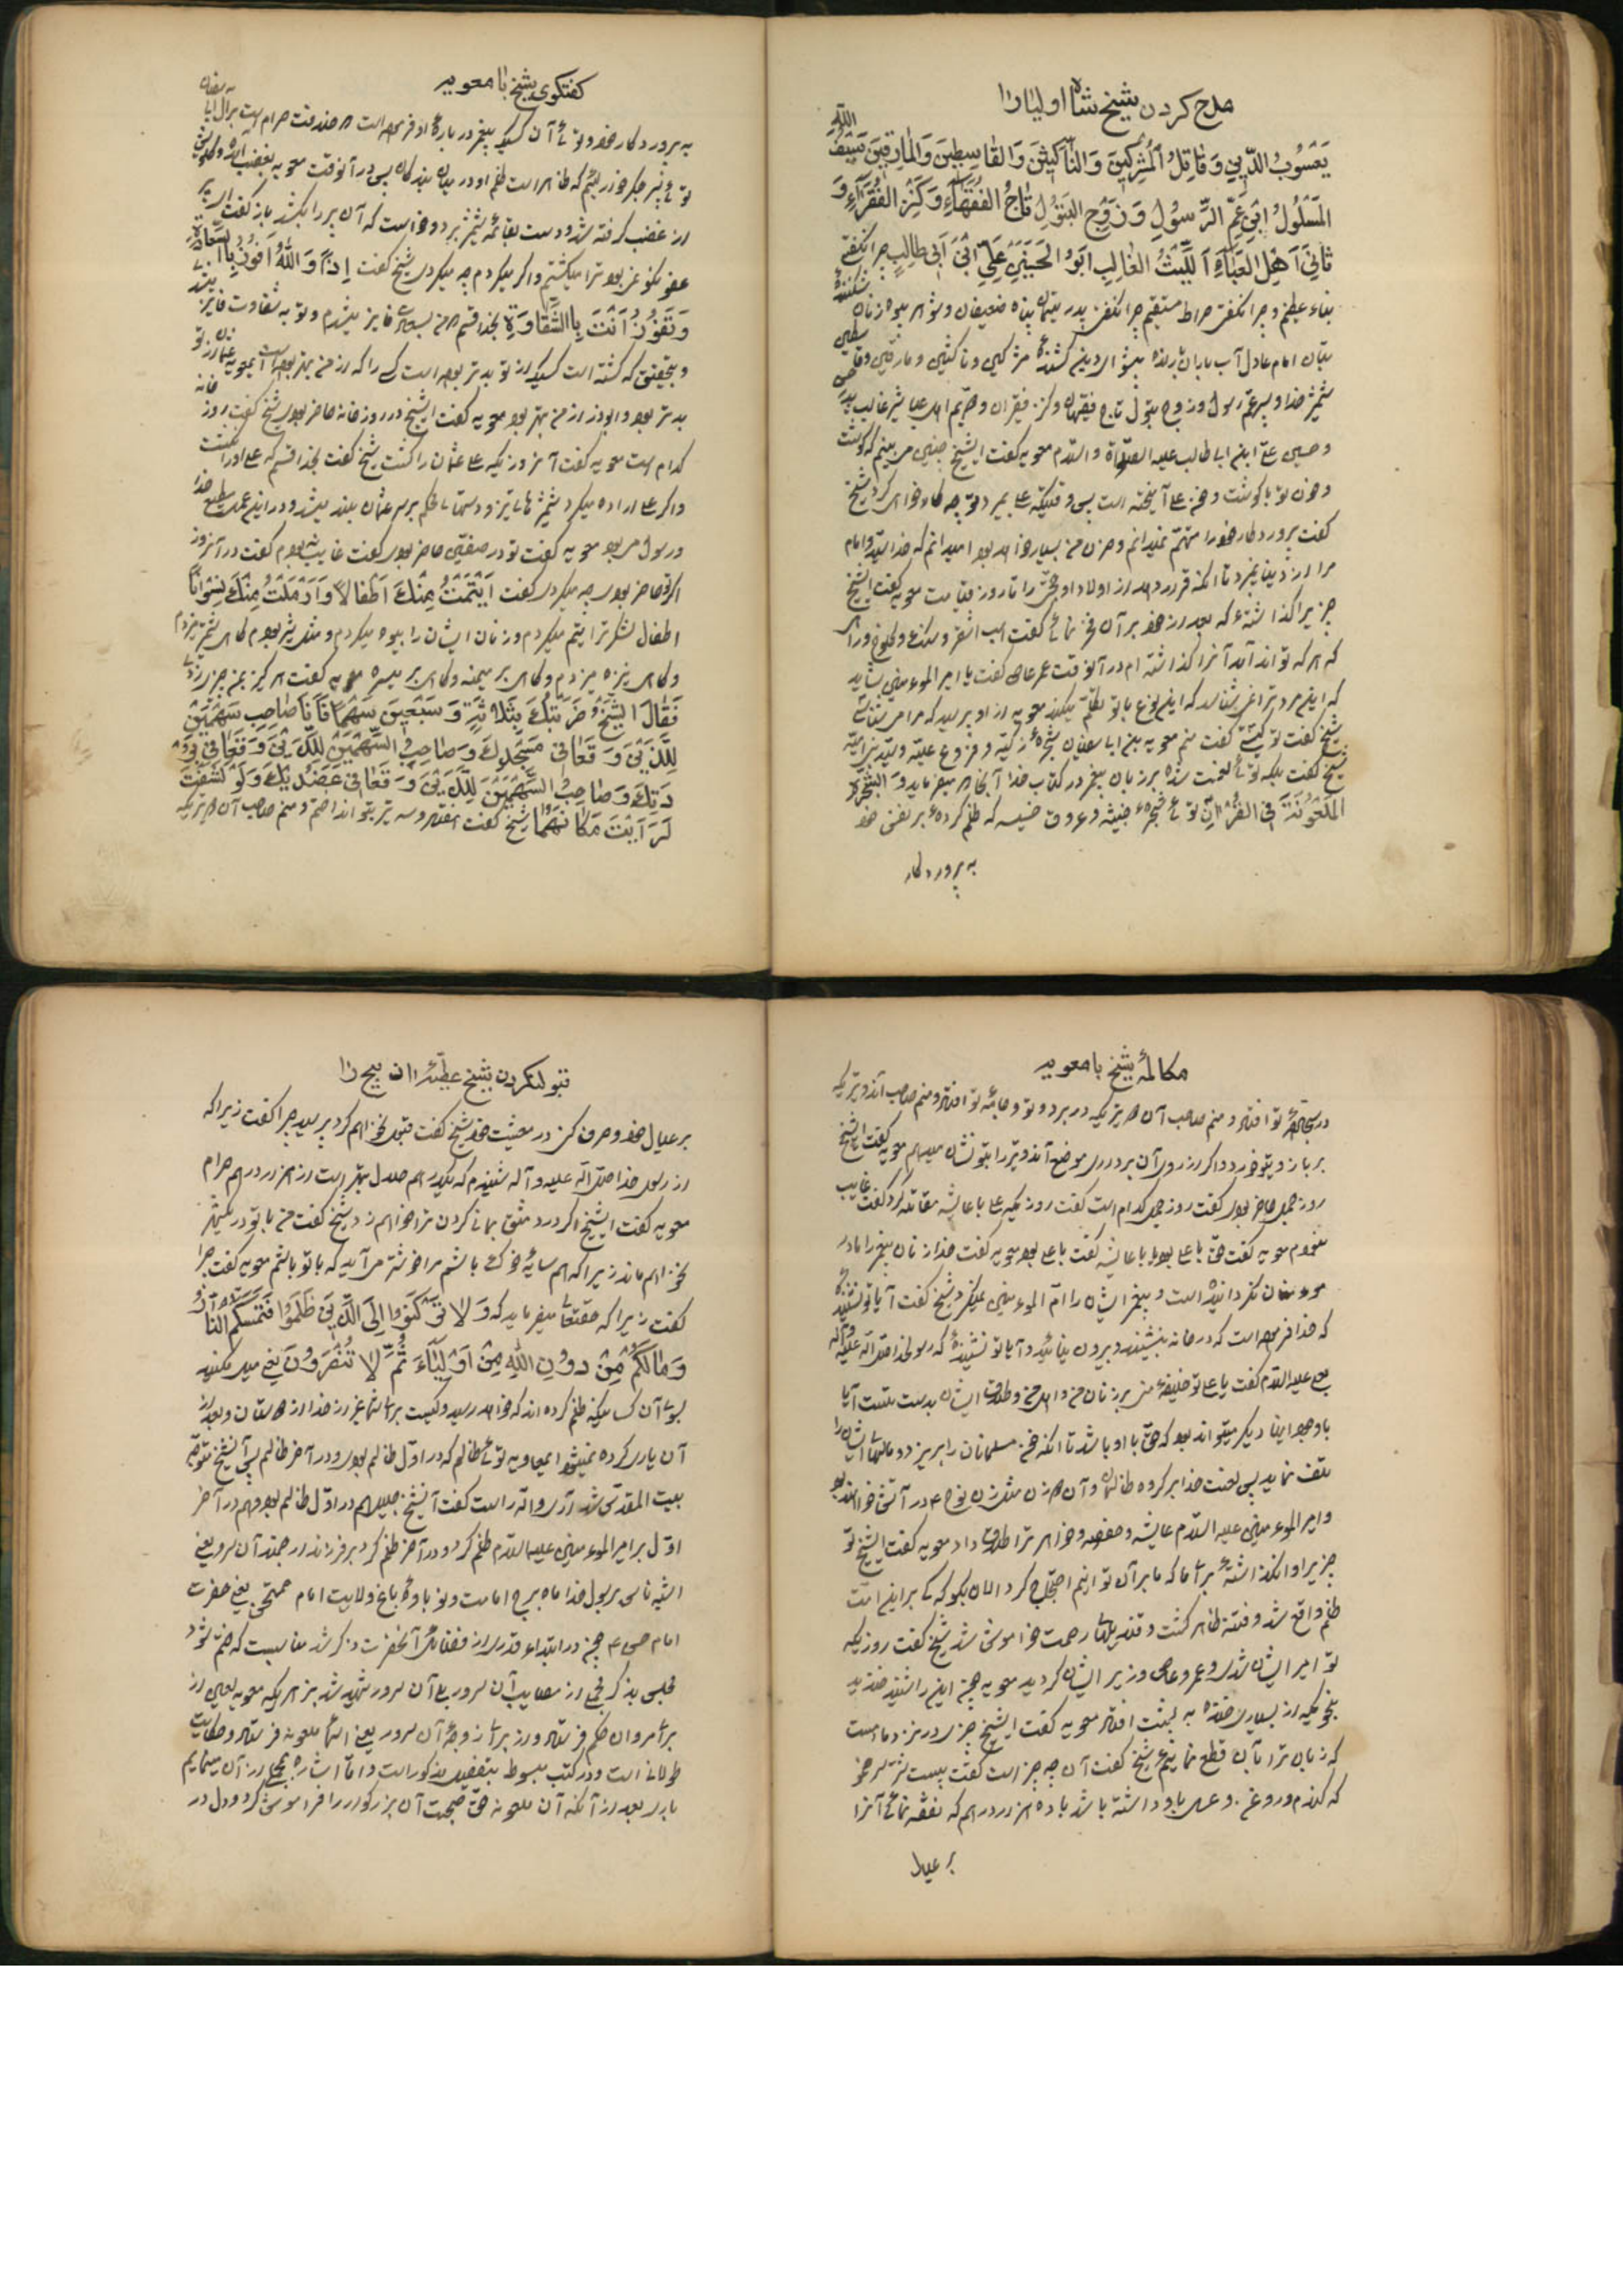 مدح کردن شیخ شاه اولیا را
یَعْسُوبُ الدّینِ وَقٰاتِلُ الْمُشْرِکینَ وَالنّٰاکِثینَ وَالقٰاسِطینَ وَالمٰارِقینَ سَیْفُ اللّه
المَسْلُولُ ابْنِ عَمِّ الرَّسُولِ وَزَوْجِ البَتُولِ تٰاجُ الفُقَهٰاءِ وَکَنْزِ الفُقَرٰاءِ وَ
اَهْلِ العَبٰاءِ اَللَّیْثُ الغٰالِبِ اَبُو الحَسَنِ عَلِیّ ابْنَ اَبی طالِبٍ چرا نکفتی
بناء عظیم و چرا نکفتی صراط مستقیم چرا نکفتی پدر یتیمان پناه ضعیفان و شوهر بیوه زنان شکننده
بتان امام عادل آب باران پیشوای دین کشندهٔ مشرکین و ناکثین و مارقین و قاسطین
شمشیر خدا و پسر عم رسول و زوج بتول تاج فقیهان و کنز فقیران و اهل عبا شیر غالب پدر حسن
و حسین علی ابن ابا طالب علیه الصلواة والسلام معویه کفت ایشیخ چنین می بینم که کوشت
و خون تو با کوشت و خون علی آمیخته است پس وقتیکه علی بمیرد تو چه کار خواهی کرد شیخ
کفت پروردکار خود را متهم نمیدانم و حزن من بسیار خواهد بود میدانم که خدا سید و امام
مرا از دنیا نمیبرد تا آنکه قرار دهد از اولاد او حجتی را تا روز قیامت معویه کفت ایشیخ
چیزیرا کذاشتهٔ که بعد از خود بر آن فخر نمائی کفت اسب اشقر و
که هر که تواند آید آنرا کذاشته ام در آنوقت عمر عاص کفت یا امیر المؤمنین شاید
که این مرد ترا نمی شناسد که این نوع با تو تکلم میکند معویه از او پرسید که مرا می شناسی
شیخ کفت تو کیستی کفت منم معویه بن ابا سفیان شجرهٔ زکیه و فروع علیه و سید بنی امیه
شیخ کفت بلکه توئی لعنت شده بر زبان پیغمبر در کتاب خدا آنجا که میفرماید وَ الشَّجَرَةَ
المَلْعُونَةَ فِی القُرْاٰنِ توئی شجرهٔ خبیثه و عروق خسیسه که ظلم کردهٔ بر نفس خود
به پروردکار
کفتکوی شیخ با معویه
به پروردکار خود و توئی آن کسیکه پیغمبر در بارهٔ او فرموده است که خلافت حرام است بر آل ابا سفیان
توئی پسر جکر خوار که ظاهر است ظلم او در میان بندکان پس در آنوقت معویه بغضب آمده
از غضب کرفته شد و دست بقائمه شمشیر برد و خواست که آن پیر را بکشد باز کفت اکر
عفو نکو نمی بود ترا میکشتم و اکر میکردم چه میکردی شیخ کفت اِذاً وَ اللهِ اَفُوزُ بِالسَّعٰادَةِ
وَ تَفُوزُ اَنْتَ بِالشَّقٰاوَةِ بخدا قسم من بسعادت فایز میشدم و تو به شقاوت فایز
و بتحقیق که کشته است کسیکه از تو بدتر بوده است کسی را که از من بهتر بوده است معویه
بدتر بود و ابوذر از من بهتر بود معویه کفت ایشیخ در روز خانه حاضر بودی شیخ کفت روز خانه
کدام است معویه کفت آنروزیکه علی عثمان را کشت شیخ کفت بخدا قسم که علی او را نکشت
و اکر علی اراده میکرد شمشیر های تیز و دستهای محکم بر سر عثمان بلند میشد و در این عمل مطیع خدا
و رسول می بود معویه کفت تو در صفین حاضر بودی کفت غایب نه بودم کفت در آنروز
اکر حاضر بودی چه میکردی کفت اَیْتَمْتُ مِنْکَ اَطْفٰالاً وَ اَرْمَلْتُ مِنْکَ نِسْوٰاناً
اطفال لشکر ترا یتیم میکردم و زنان ایشان را بیوه میکردم و مثل شیر بودم کاهی شمشیر میزدم
و کاهی نیزه میزدم و کاهی بر میمنه و کاهی بر میسره معویه کفت هرکز بمن چیزی زدهٔ
فَقٰالَ الشَّیْخُ ضَرَبْتُکَ بِثَلاثَةٍ وَ سَبْعینَ سَهْماً فَاَنَا صٰاحِبُ سَهْمَیْنِ
لِلَّذَیْنِ وَقَعٰا فی مَسْجِدِکَ وَ صٰاحِبُ السَّهْمَیْنِ لِلَّذَیْنِ وَقَعٰا فی بُرْ
دَتِکَ وَ صٰاحِبُ السَّهْمَیْنِ لِلَّذَیْنِ وَقَعٰا فی عَضُدَیْکَ وَ لَوْ کَشَفْتَ
لَرَاَیْتَ مَکٰانَهُمٰا شیخ کفت هفتاد و سه تیر بتو انداختم و منم صاحب آن دو تیریکه
مکالمهٔ شیخ با معویه
در سجادهٔ تو افتاد و منم صاحب آن دو تیریکه در برد تو و جامهٔ تو افتاد و منم صاحب آندو تیریکه
بر بازویتو خورد و اکر از روی آن برداری موضع آندو تیر را بتو نشان میدهم معویه کفت ایشیخ
روز جمل حاضر بودی کفت روز جمل کدام است کفت روزیکه علی با عایشه مقاتله کرد کفت غایب
نبودم معویه کفت حق با علی بود یا با عایشه کفت با علی بود معویه کفت خدا زنان پیغمبر را مادر
مؤمنان نکردانیده است و پیغمبر ایشان را ام المؤمنین نمیکفت شیخ کفت آیا تو نشنیدهٔ
که خدا فرموده است که در خانه بنشینند و بیرون نیائید و آیا تو نشنیدهٔ که رسولخدا صلی الله علیه و آله
بعلی علیه السلام کفت یا علی تو خلیفهٔ منی بر زنان من و اهل من و طلاق ایشان بدست تست آیا
با وجود اینها دیکر میتواند بود که حق با او باشد تا آنکه خون مسلمانان را بریزد و مالهای ایشان را
تلف نماید پس لعنت خدا بر کروه ظالمان و آن زن مثل زن نوح ع در آتش خواهد بود
و امیر المؤمنین علیه السلام عایشه و حفصه و خواهر ترا طلاق داد معویه کفت ایشیخ تو
چیزیرا وانکذاشتهٔ برای ما که ما بر آن تو انیم احتجاج کرد الان بکو که کی بر این امت
ظلم واقع شد و فتنه ظاهر کشت و قندیلهای رحمت خواموش شد شیخ کفت روزیکه
تو امیر ایشان شدی و عمرو عاص وزیر ایشان کردید معویه چون این را شنید خندید
بنحویکه از بسیاری خنده به پشت افتاد معویه کفت ایشیخ چیزی در نزد ما هست
که زبان ترا بآن قطع نمائیم شیخ کفت آن چه چیز است کفت بیست شتر سرخ مو
که کندم و روغن و عسل باو داشته باشد با ده هزار درهم که نفقه نمائی آنرا
بر عیال
قبول نکردن شیخ عطیهٔ آن پیح را
بر عیال خود و صرف کنی در معیشت خود شیخ کفت قبول نخواهم کرد پرسید چرا کفت زیرا که
از رسول خدا صلی الله علیه و آله شنیدم که یکدرهم حلال بهتر است از هزار درهم حرام
معویه کفت ایشیخ اکر در دمشق بمانی کردن ترا خواهم زد شیخ کفت من با تو در یکشهر
نخواهم ماند زیرا که همسایهٔ خوک باشم مرا خوشتر می آید که با تو باشم معویه کفت چرا
کفت زیرا که حقتعالی میفرماید که وَ لا تَرْکَنُوا اِلَی الَّذینَ ظَلَمُوا فَتَمَسَّکُمُ النّٰارُ
وَ مٰالَکُمْ مِنْ دُونِ اللهِ مِنْ اَوْلِیٰاءَ ثُمَّ لا تُنْصَرُونَ یعنی میل مکنید
بسوی آن کسانیکه ظلم کرده اند که خواهد رسید و نیست برای شما غیر از خدا از دوستان و بعد از
آن یاری کرده نمیشوید ایمعاویه توئی ظالم که در اول ظالم بودی و در آخر ظالم پس آنشیخ متوجه
بیت المقدس شد آری والله راست کفت آنشیخ جلیل هم در اول ظالم بود و هم در آخر
اول بر امیر المؤمنین علیه السلام ظلم کرد و در آخر ظلم کرد بر فرزند ارجمند آن سرور یعنی
اشبه ناس برسول خدا ماه برج امامت و نوباوهٔ باغ ولایت امام ممتحن یعنی حضرت
امام حسن ع چون در ابتداء قدری از فضائل آنحضرت ذکر شد مناسبست که ختم شود
مجلس بذکر مجملی از مصایب آن سرور بلی آن سرور شهید شد بزهریکه معویه لعین از
برای مروان حکم فرستاد و از برای زوجهٔ آن سرور یعنی اسمای ملعونه فرستاد و حکایت
طولانی است و در کتب مبسوط بتفصیل مذکور است و اما اشاره مجملی از آن مینمایم
باری بعد از آنکه آن ملعونه حق صحبت آن بزرکوار را فراموش کرد و دل در